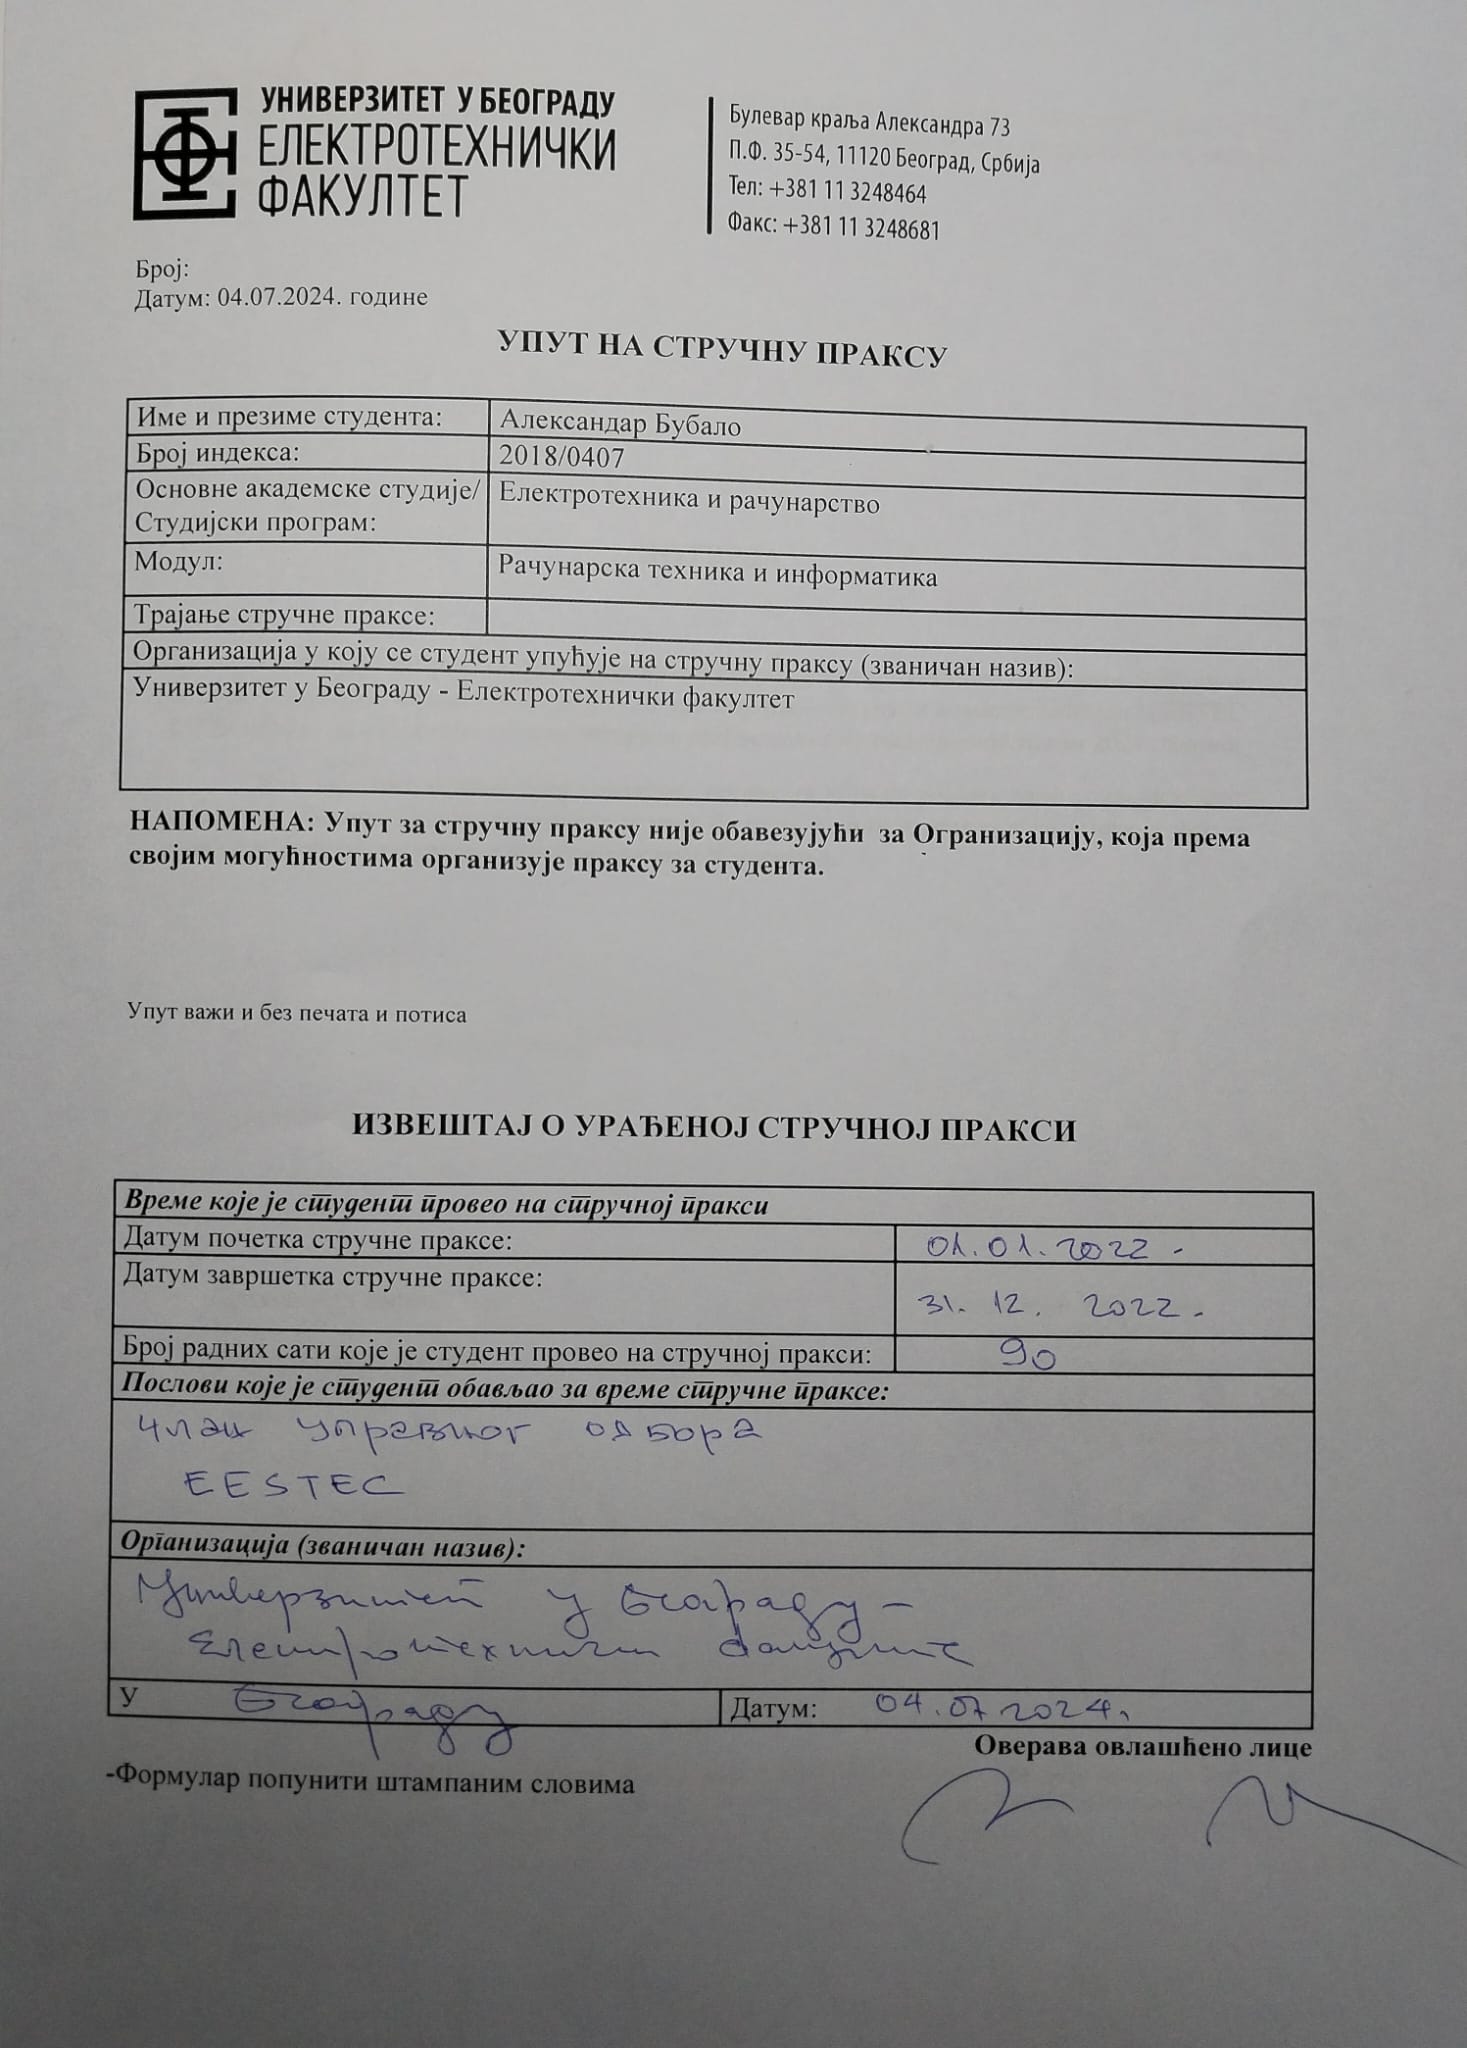 УНИВЕРЗИТЕТ У БЕОГРАДУ
ЕЛЕКТРОТЕХНИЧКИ
ФАКУЛТЕТ
Булевар краља Александра 73
П.Ф. 35-54, 11120 Београд, Србија
Тел: +381 11 3248464
Факс: +381 11 3248681
Број:
Датум: 04.07.2024. године
УПУТ НА СТРУЧНУ ПРАКСУ
Име и презиме студента: Александар Бубало
Број индекса: 2018/0407
Основне академске студије/ Електротехника и рачунарство
Студијски програм:
Модул: Рачунарска техника и информатика
Трајање стручне праксе:
Организација у коју се студент упућује на стручну праксу (званичан назив):
Универзитет у Београду - Електротехнички факултет
НАПОМЕНА: Упут за стручну праксу није обавезујући за Огранизацију, која према
својим могућностима организује праксу за студента.
Упут важи и без печата и потиса
ИЗВЕШТАЈ О УРАЂЕНОЈ СТРУЧНОЈ ПРАКСИ
Време које је студент провео на стручној пракси
Датум почетка стручне праксе: 01.01.2022.
Датум завршетка стручне праксе:
31. 12. 2022.
Број радних сати које је студент провео на стручној пракси: 90
Послови које је студент обављао за време стручне праксе:
члан управног одбора
EESTEC
Организација (званичан назив):
Универзитет у Београду -
Електротехнички факултет
У Београду Датум: 04.07.2024.
Оверава овлашћено лице
-Формулар попунити штампаним словима